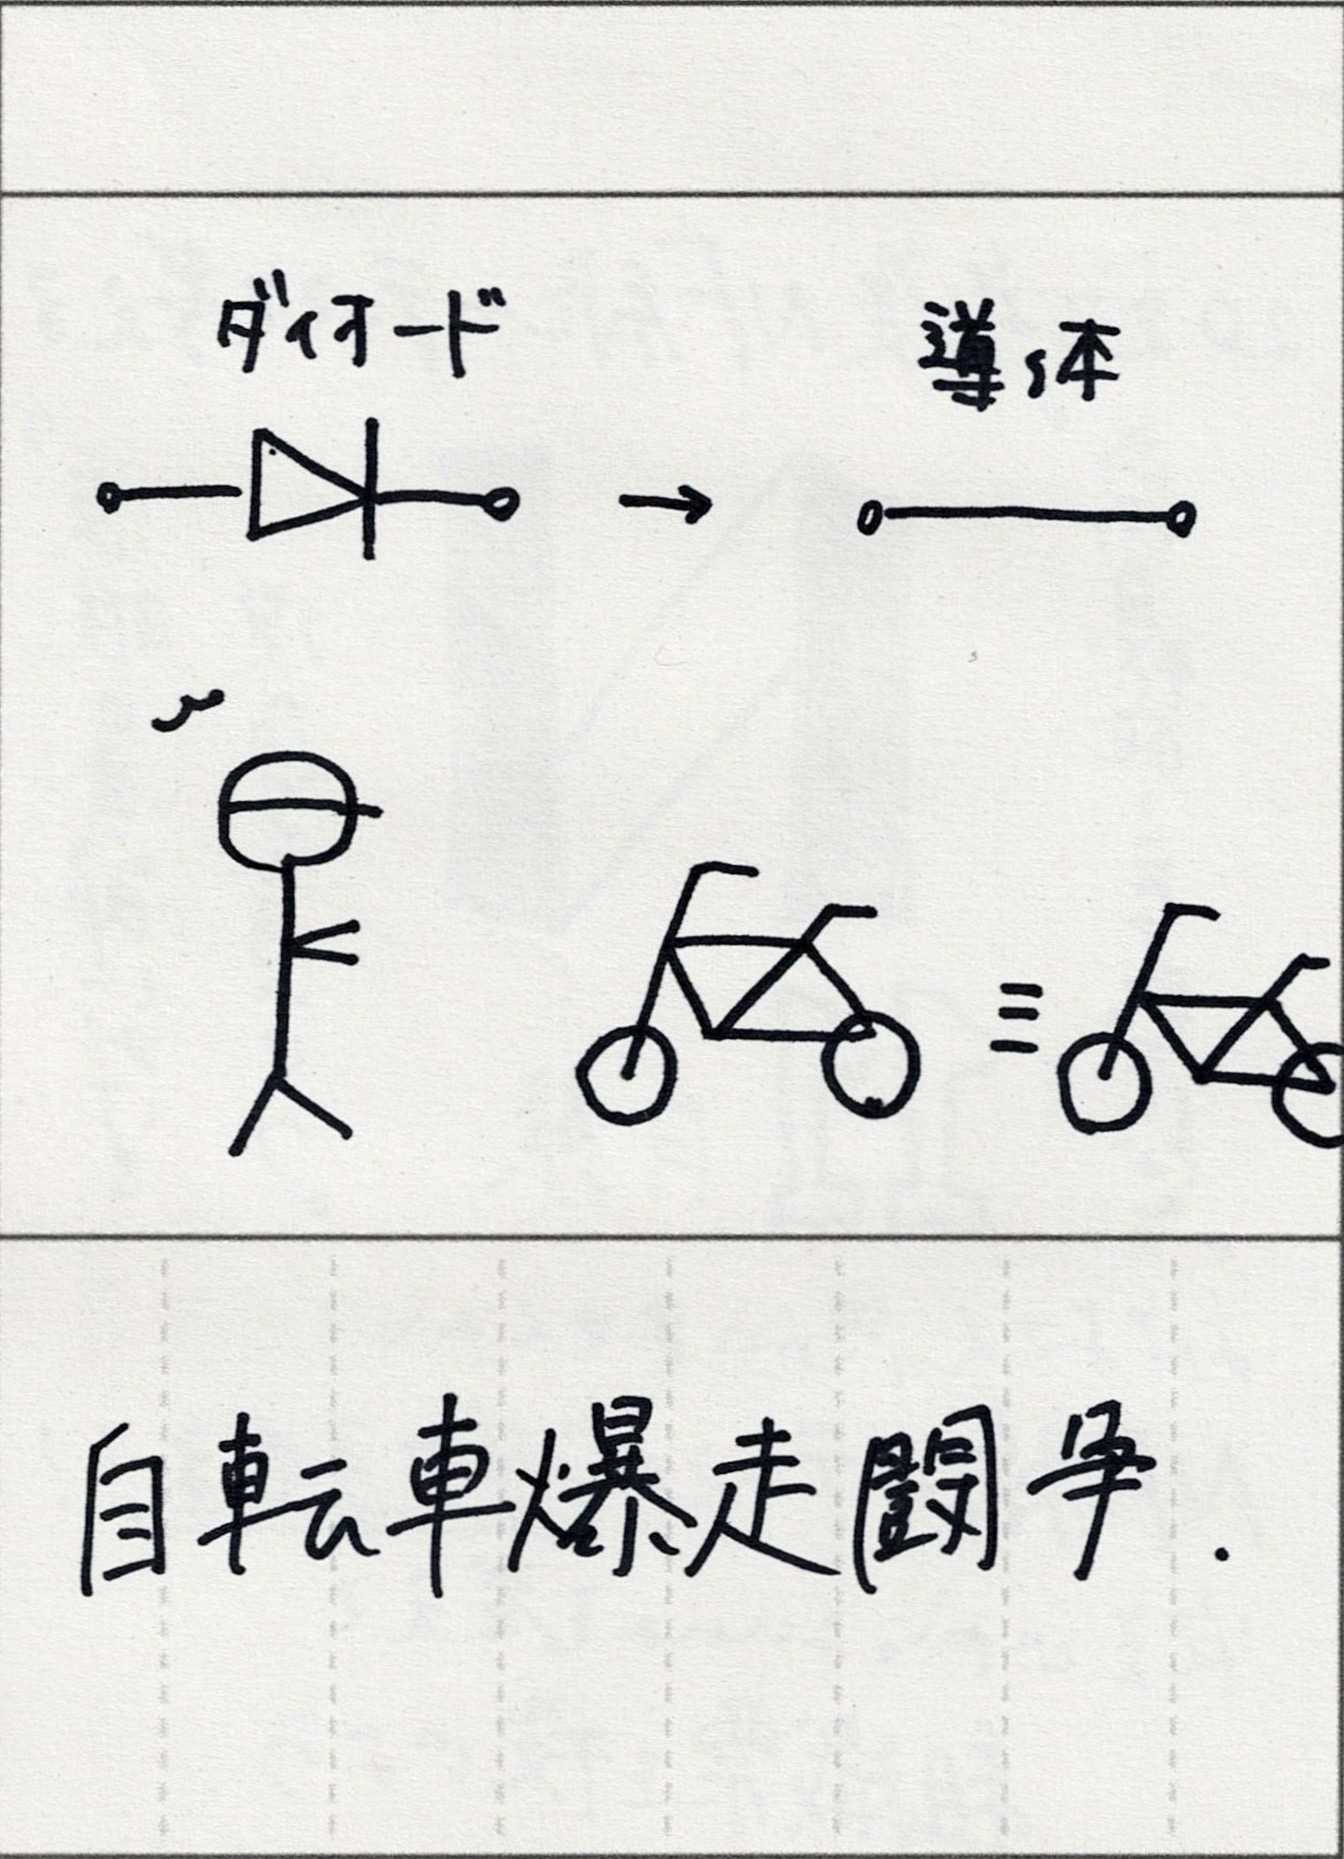 ダイオード
導体
自転車爆走闘争.